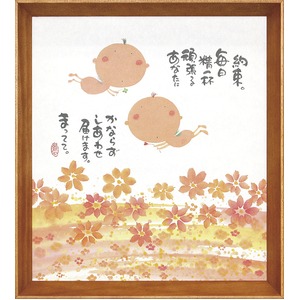 約束。
毎日
精一杯
頑張る
あなたに
かならず
しあわせ
届けます。
まってて。